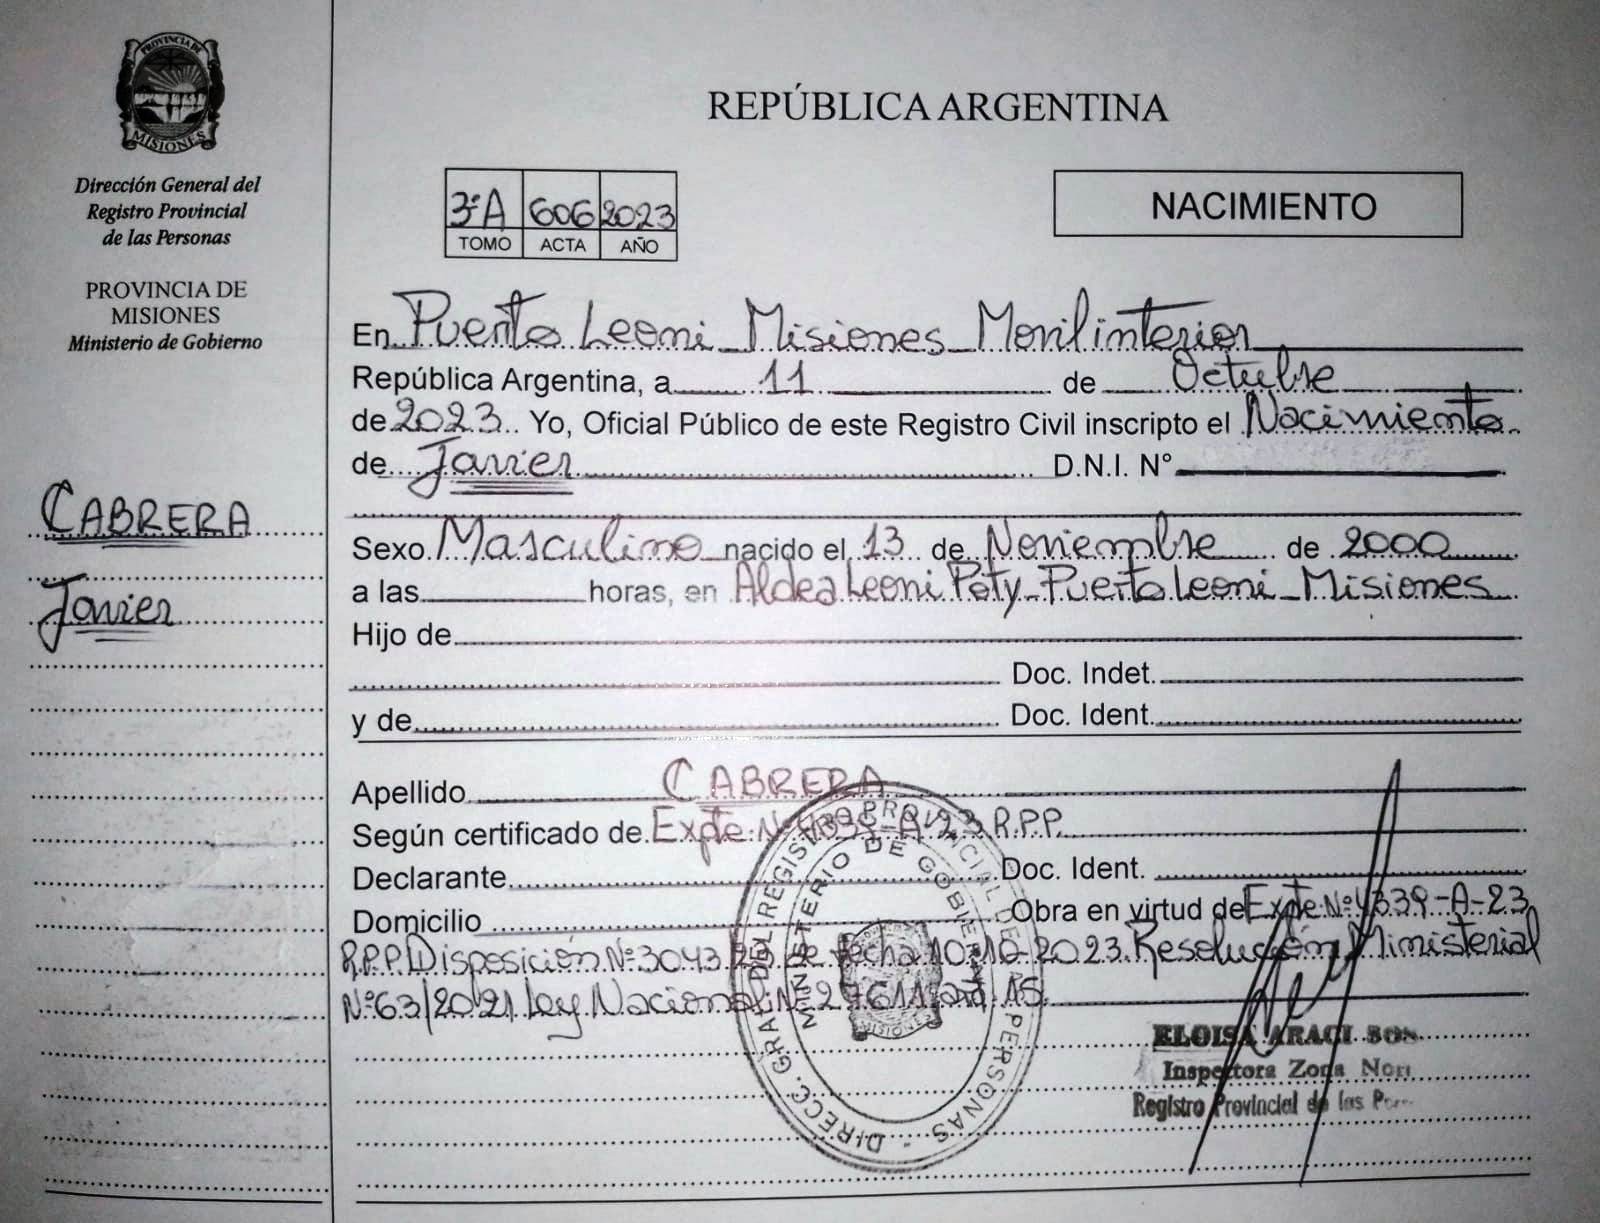 PROVINCIA DE
MISIONES
Dirección General del
Registro Provincial
de las Personas
PROVINCIA DE
MISIONES
Ministerio de Gobierno
CABRERA
Javier
REPÚBLICA ARGENTINA
3ºA 606 2023
TOMO ACTA AÑO
NACIMIENTO
En Puerto Leoni - Misiones - Movil interior
República Argentina, a 11 de Octubre
de 2023 Yo, Oficial Público de este Registro Civil inscripto el Nacimiento
de Javier D.N.I. N°
Sexo Masculino nacido el 13 de Noviembre de 2000
a las horas, en Aldea Leoni Poty - Puerto Leoni - Misiones
Hijo de
Doc. Indet.
y de Doc. Ident.
Apellido CABRERA
Según certificado de Expte. Nº 4339-A-23 R.P.P.
Declarante Doc. Ident.
Domicilio Obra en virtud de Expte. Nº 4339-A-23
R.P.P. Disposición Nº 3043/23 de fecha 10-10-2023. Resolución Ministerial
Nº 63/2021 Ley Nacional Nº 27611 art. 15.
DIRECC. GRAL. DEL REGISTRO PROVINCIAL DE PERSONAS
MINISTERIO DE GOBIERNO
ELOISA ARACI
Inspectora Zona
Registro Provincial de las